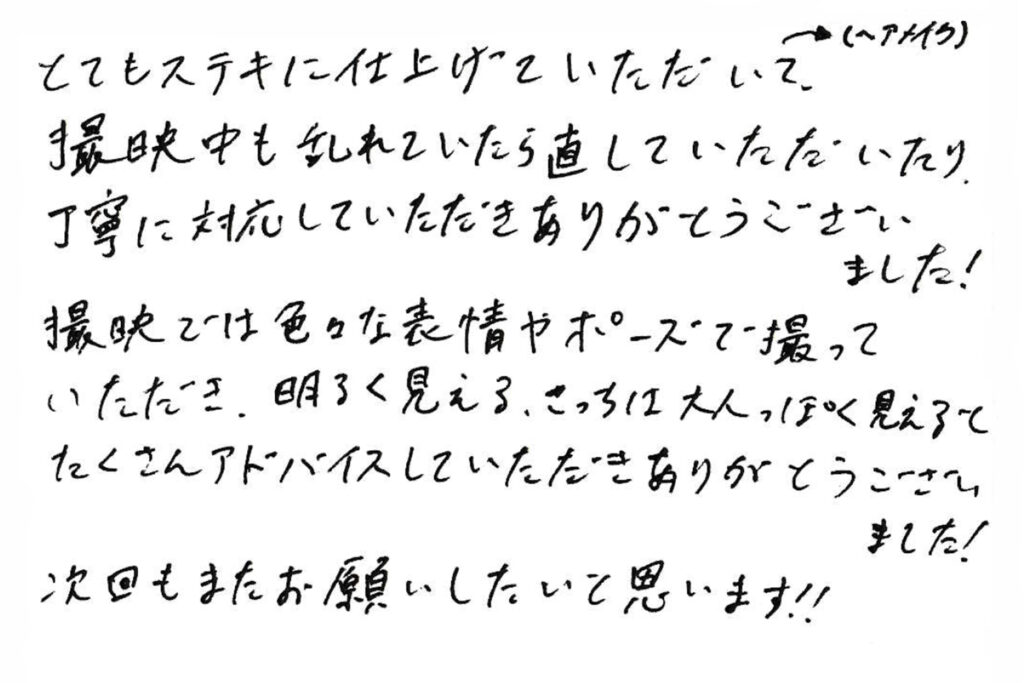 とてもステキに仕上げていただいて、→(ヘアメイク)
撮映中も乱れていたら直していただいたり、
丁寧に対応していただきありがとうござい
ました!
撮映では色々な表情やポーズで撮って
いただき、明るく見える、こっちは大人っぽく見えると
たくさんアドバイスしていただきありがとうござい
ました!
次回もまたお願いしたいと思います!!